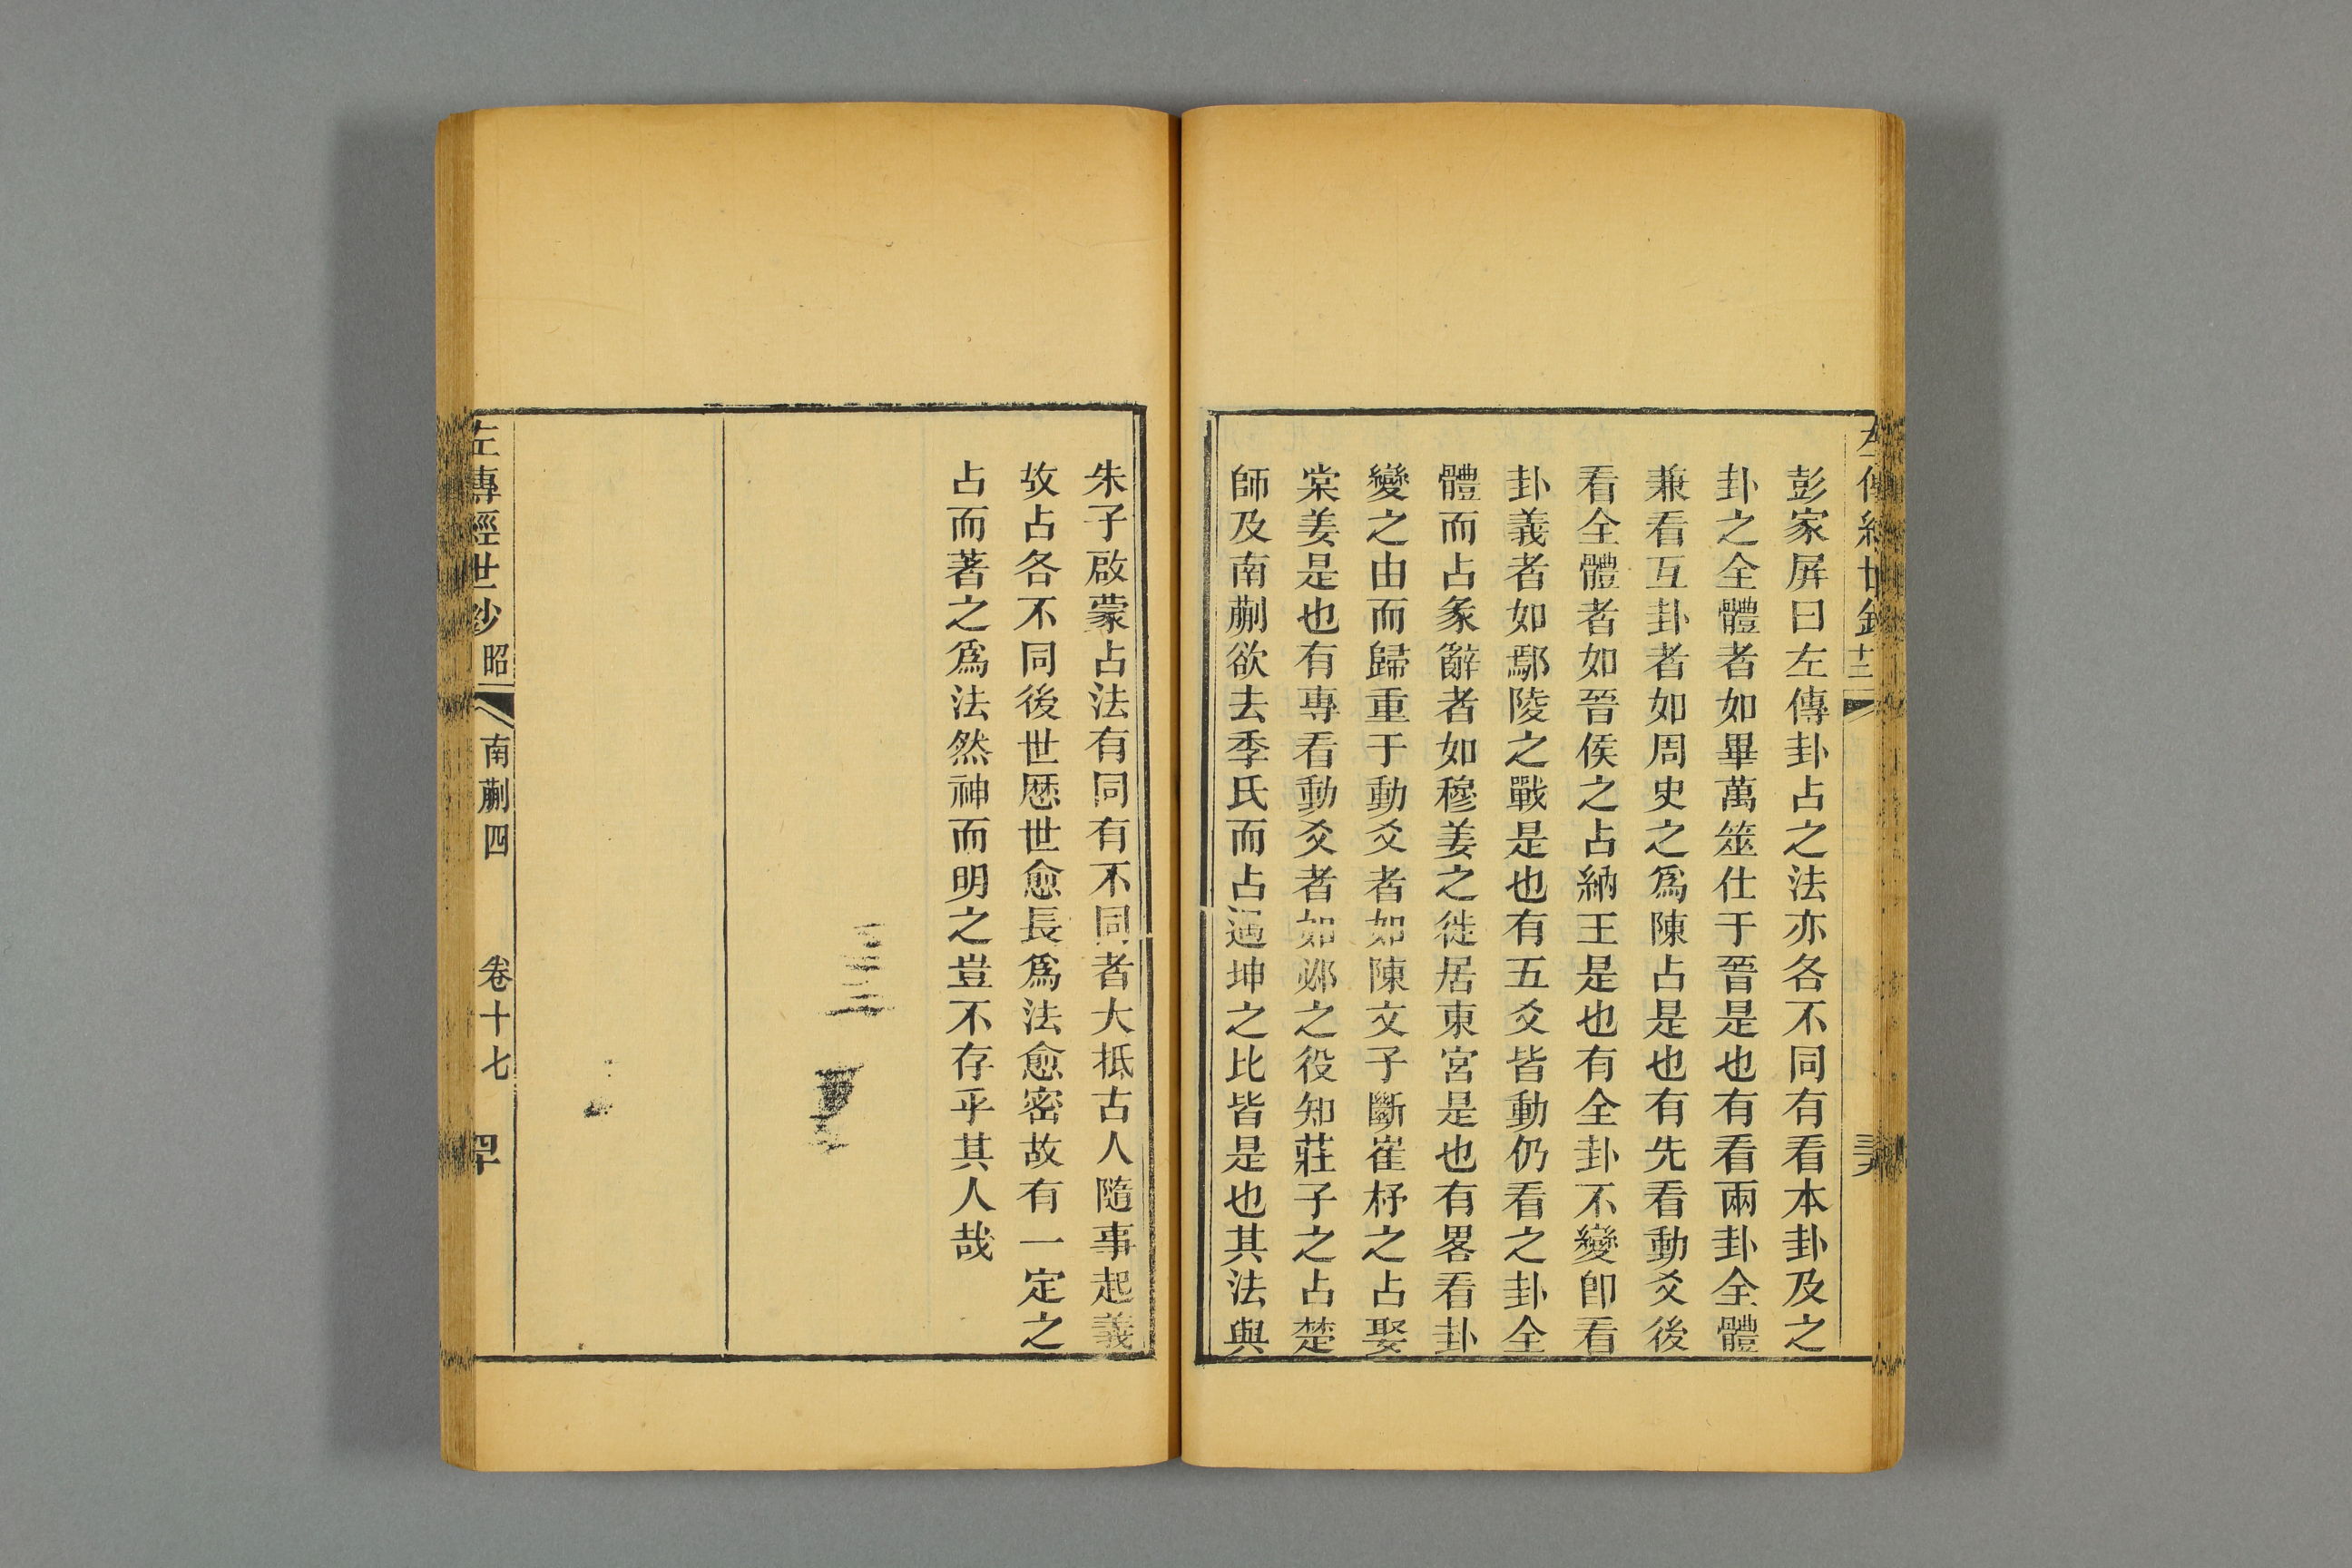 彭家屏曰左傳卦占之法亦各不同有看本卦及之
卦之全體者如畢萬筮仕于晉是也有看兩卦全體
兼看互卦者如周史之爲陳占是也有先看動爻後
看全體者如晉侯之占納王是也有全卦不變卽看
卦義者如鄢陵之戰是也有五爻皆動仍看之卦全
體而占彖辭者如穆姜之徙居東宮是也有畧看卦
變之由而歸重于動爻者如陳文子斷崔杼之占娶
棠姜是也有專看動爻者如邲之役知莊子之占楚
師及南蒯欲去季氏而占遇坤之比皆是也其法與
朱子啟蒙占法有同有不同者大抵古人隨事起義
故占各不同後世歷世愈長爲法愈密故有一定之
占而著之爲法然神而明之豈不存乎其人哉
左傳經世鈔 昭 南蒯四 卷十七